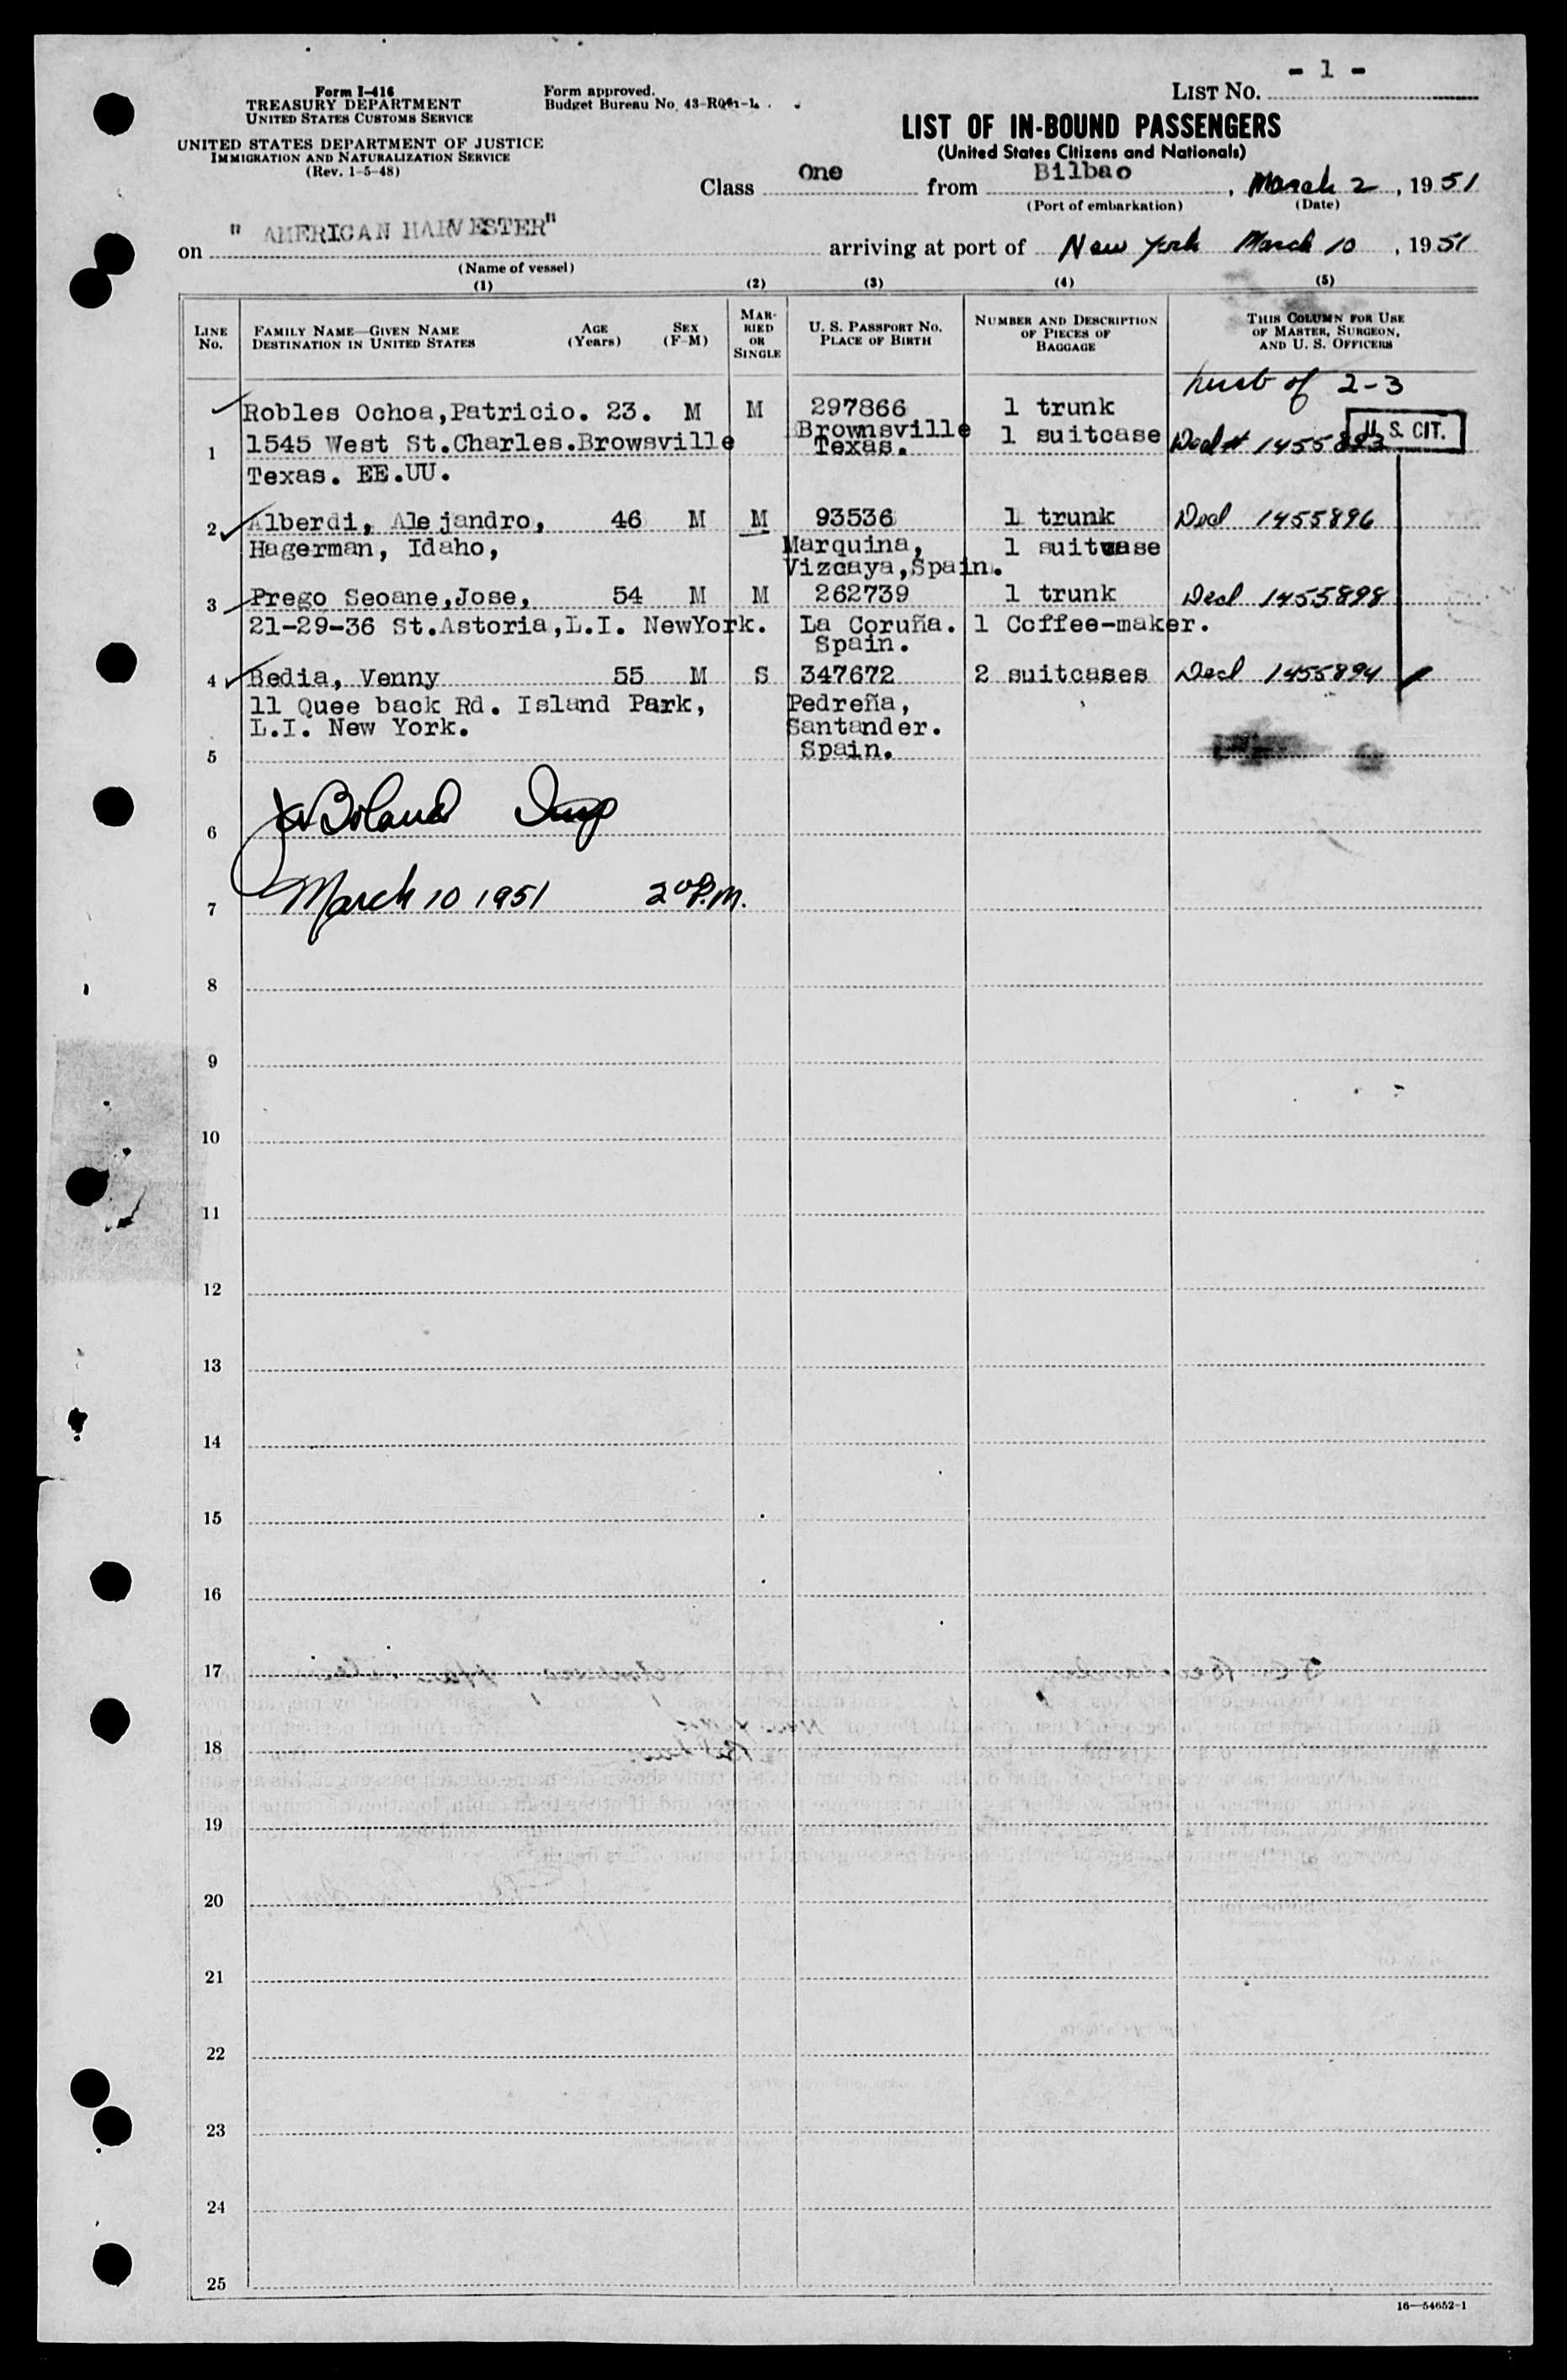 - 1 -
Form I-416
TREASURY DEPARTMENT
UNITED STATES CUSTOMS SERVICE
UNITED STATES DEPARTMENT OF JUSTICE
IMMIGRATION AND NATURALIZATION SERVICE
(Rev. 1-5-48)
Form approved.
Budget Bureau No. 43-R041-1.
LIST NO.
LIST OF IN-BOUND PASSENGERS
(United States Citizens and Nationals)
Class One from Bilbao, March 2, 1951
(Port of embarkation) (Date)
on " AMERICAN HARVESTER" arriving at port of New York March 10, 1951
(Name of vessel)
(1) (2) (3) (4) (5)
LINE NO. FAMILY NAME—GIVEN NAME DESTINATION IN UNITED STATES AGE (Years) SEX (F-M) MARRIED OR SINGLE U. S. PASSPORT NO. PLACE OF BIRTH NUMBER AND DESCRIPTION OF PIECES OF BAGGAGE THIS COLUMN FOR USE OF MASTER, SURGEON, AND U. S. OFFICERS
of 2-3
Robles Ochoa,Patricio. 23. M M 297866 1 trunk
1 1545 West St.Charles.Browsville Brownsville Texas. 1 suitcase Decl # 1455893 U. S. CIT.
Texas. EE.UU.
2 Alberdi, Alejandro, 46 M M 93536 1 trunk Decl 1455896
Hagerman, Idaho, Marquina, 1 suitcase
Vizcaya,Spain.
3 Prego Seoane,Jose, 54 M M 262739 1 trunk Decl 1455898
21-29-36 St.Astoria,L.I. NewYork. La Coruña. 1 Coffee-maker.
Spain.
4 Bedia, Venny 55 M S 347672 2 suitcases Decl 1455894
11 Quee back Rd. Island Park, Pedreña,
L.I. New York. Santander.
5 Spain.
6 Boland Insp
7 March 10 1951 2 00 P.M.
8
9
10
11
12
13
14
15
16
17
18
19
20
21
22
23
24
25
16—54652-1